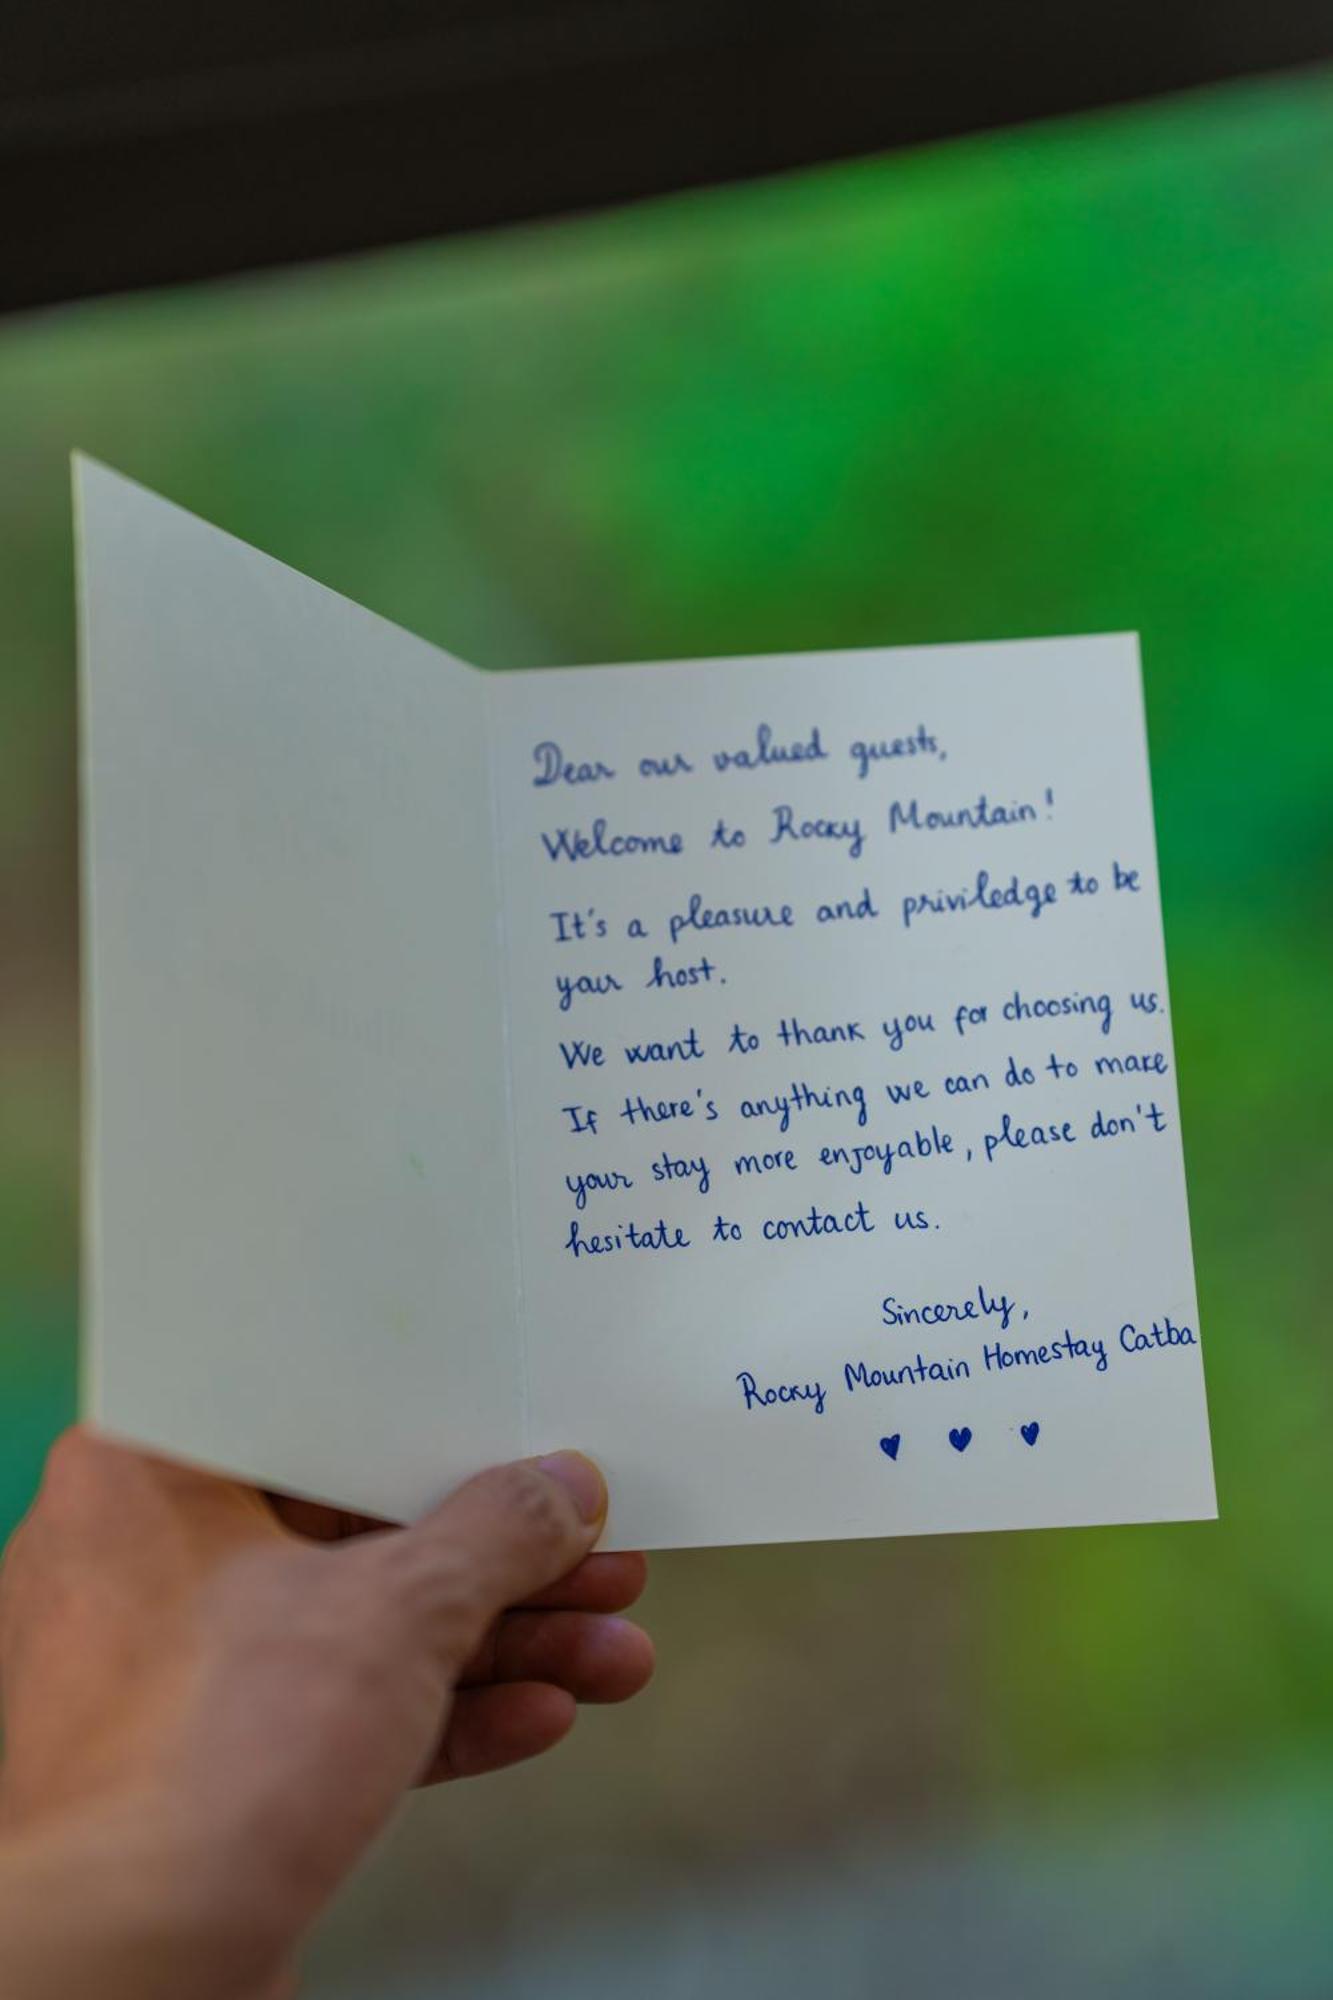 Dear our valued guests,
Welcome to Rocky Mountain!
It's a pleasure and priviledge to be
your host.
We want to thank you for choosing us.
If there's anything we can do to make
your stay more enjoyable, please don't
hesitate to contact us.
Sincerely,
Rocky Mountain Homestay Catba
♥ ♥ ♥